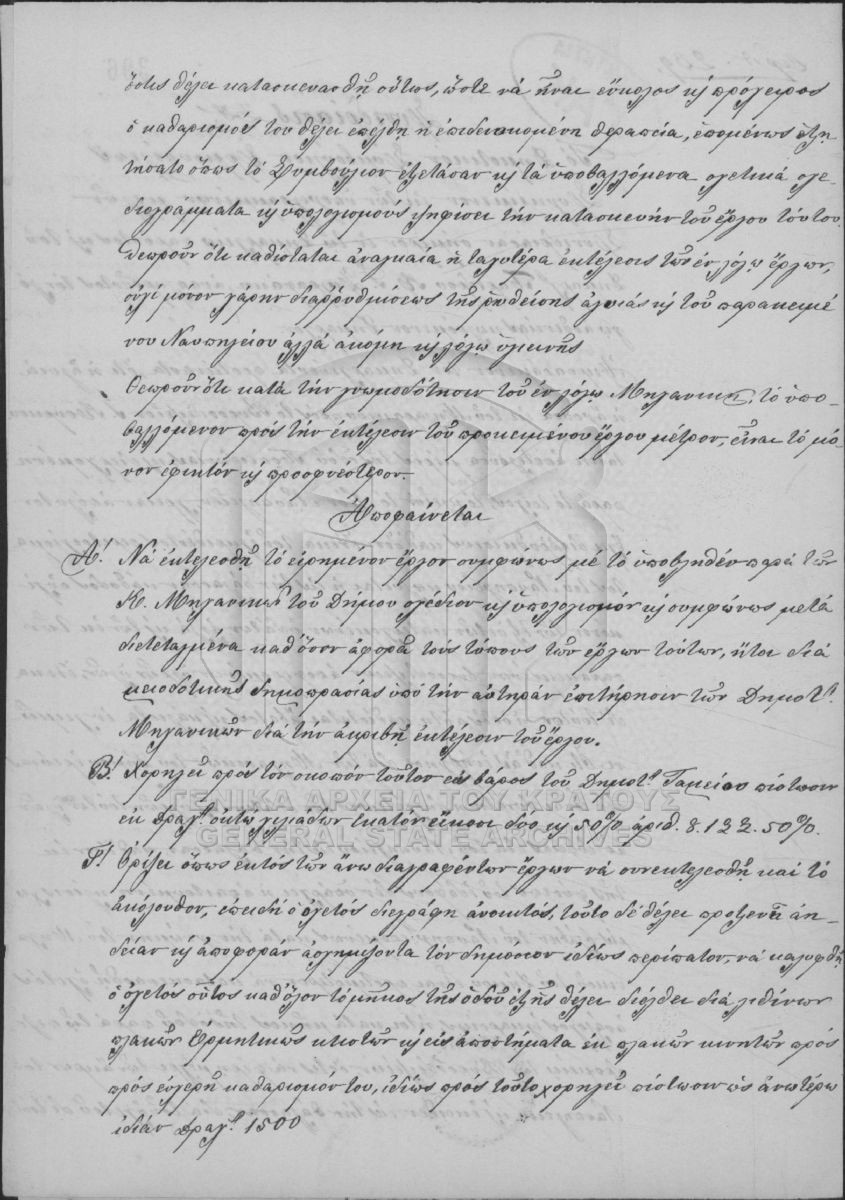 ὅστις θέλει κατασκευασθῇ οὕτως, ὥστε νὰ ἦναι εὔκολος κ πρόχειρος
ὁ καθαρισμός του θέλει ἐπέλθῃ ἡ ἐπιδιωκομένη θεραπεία, ἑπομένως ἐζη-
τήσατο ὅπως τὸ Συμβούλιον ἐξετάσαν κ τὰ ὑποβαλλόμενα σχετικὰ σχε-
διογράμματα κ ὑπολογισμοὺς ψηφίσει τὴν κατασκευὴν τοῦ ἔργου τούτου.
Θεωροῦν ὅτι καθίσταται ἀναγκαία ἡ ταχυτέρα ἐκτέλεσις τῶν ἐν λόγῳ ἔργων,
οὐχὶ μόνον χάριν διαρρυθμίσεως τῆς ῥηθείσης ἀγυιᾶς κ τοῦ παρακειμέ
νου Ναυπηγείου ἀλλὰ ἀκόμη κ λόγῳ ὑγιεινῆς
Θεωροῦν ὅτι κατὰ τὴν γνωμοδότησιν τοῦ ἐν λόγῳ Μηχανικοῦ, τὸ ὑπο-
βαλλόμενον πρὸς τὴν ἐκτέλεσιν τοῦ προκειμένου ἔργου μέτρον, εἶναι τὸ μό-
νον ἐφικτὸν κ προσφυέστερον.
Ἀποφαίνεται
Α'. Νὰ ἐκτελεσθῇ τὸ εἰρημένον ἔργον συμφώνως μὲ τὸ ὑποβληθὲν παρὰ τῶν
Κ. Μηχανικῶν τοῦ Δήμου σχέδιον κ ὑπολογισμὸν κ συμφώνως μετὰ
διατεταγμένα καθ' ὅσον ἀφορᾷ τοὺς τύπους τῶν ἔργων τούτων, ἤτοι διὰ
μειοδοτικῆς δημοπρασίας ὑπὸ τὴν αὐστηρὰν ἐπιτήρησιν τῶν Δημοτ.
Μηχανικῶν διὰ τὴν ἀκριβῆ ἐκτέλεσιν τοῦ ἔργου.
Β'. Χορηγεῖ πρὸς τὸν σκοπὸν τοῦτον εἰς βάρος τοῦ Δημοτ. Ταμείου πίστωσιν
ἐκ δραχ. ὀκτὼ χιλιάδων ἑκατὸν εἴκοσι δύο κ 50% ἀριθ. 8.122.50%.
ΓΕΝΙΚΑ ΑΡΧΕΙΑ ΤΟΥ ΚΡΑΤΟΥΣ
GENERAL STATE ARCHIVES
Γ'. Ὁρίζει ὅπως ἐκτὸς τῶν ἄνω διαγραφέντων ἔργων νὰ συνεκτελεσθῇ καὶ τὸ
ἀκόλουθον, ἐπειδὴ ὁ ὀχετὸς διεγράφη ἀνοικτός, τοῦτο δὲ θέλει προξενεῖ ἀη-
δίαν κ ἀποφορὰν ἀσχημίζοντα τὸν δημόσιον ἰδίως περίπατον, νὰ καλυφθῇ
ὁ ὀχετὸς οὗτος καθ' ὅλον τὸ μῆκος τῆς ὁδοῦ ἐξ ἧς θέλει διέλθει διὰ λιθίνων
πλακῶν ἑρμητικῶς κτιστῶν κ εἰς ἀποστήματα ἐκ πλακῶν κινητῶν πρὸς
πρὸς εὐχερῆ καθαρισμόν του, ἰδίως πρὸς τοῦτο χορηγεῖ πίστωσιν ὡς ἀνωτέρω
ἰδίαν δραχ. 1500